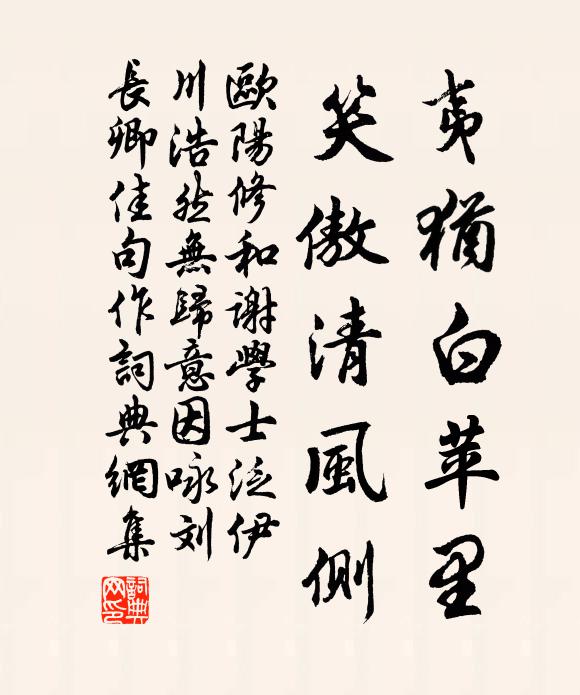 夷猶白苹里
笑傲清風側
歐陽修和謝學士泛伊
川浩然無歸意因咏刘
長卿佳句作詞典網集
詞典
网印